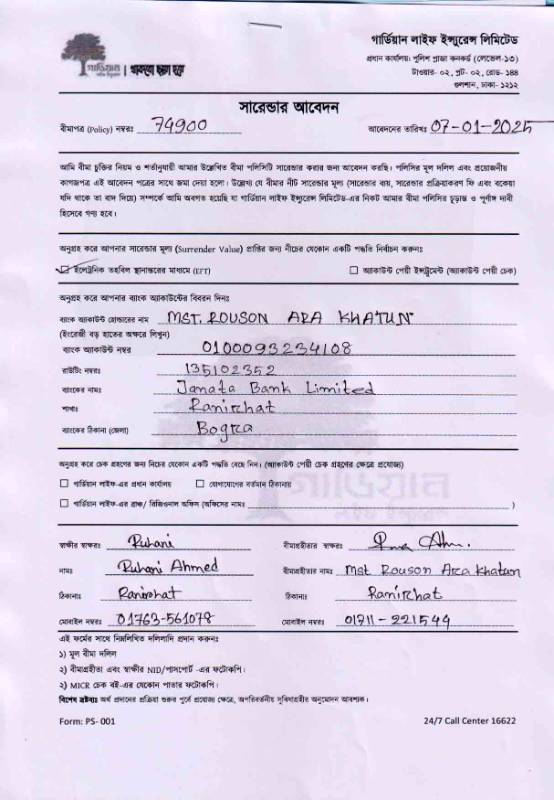 গার্ডিয়ান লাইফ ইন্স্যুরেন্স লিমিটেড
প্রধান কার্যালয়: পুলিশ প্লাজা কনকর্ড (লেভেল-১৩)
টাওয়ার- ০২, প্লট- ০২, রোড- ১৪৪
গুলশান, ঢাকা- ১২১২
গার্ডিয়ান
সারেন্ডার আবেদন
বীমাপত্র (Policy) নম্বরঃ 74900 আবেদনের তারিখঃ 07-01-2025
আমি বীমা চুক্তির নিয়ম ও শর্তানুযায়ী আমার উল্লেখিত বীমা পলিসিটি সারেন্ডার করার জন্য আবেদন করছি। পলিসির মূল দলিল এবং প্রয়োজনীয়
কাগজপত্র এই আবেদন পত্রের সাথে জমা দেয়া হলো। উল্লেখ্য যে বীমার নীট সারেন্ডার মূল্য (সারেন্ডার ব্যয়, সারেন্ডার প্রক্রিয়াকরণ ফি এবং বকেয়া
যদি থাকে তা বাদ দিয়ে) সম্পর্কে আমি অবগত হয়েছি যা গার্ডিয়ান লাইফ ইন্স্যুরেন্স লিমিটেড-এর নিকট আমার বীমা পলিসির চূড়ান্ত ও পূর্ণাঙ্গ দাবী
হিসেবে গণ্য হবে।
অনুগ্রহ করে আপনার সারেন্ডার মূল্য (Surrender Value) প্রাপ্তির জন্য নীচের যেকোন একটি পদ্ধতি নির্বাচন করুনঃ
ইলেক্ট্রনিক তহবিল স্থানান্তরের মাধ্যমে (EFT) অ্যাকাউন্ট পেয়ী ইন্সট্রুমেন্ট (অ্যাকাউন্ট পেয়ী চেক)
অনুগ্রহ করে আপনার ব্যাংক অ্যাকাউন্টের বিবরন দিনঃ
ব্যাংক অ্যাকাউন্ট হোল্ডারের নাম MST. ROUSON ARA KHATUN
(ইংরেজী বড় হাতের অক্ষরে লিখুন)
ব্যাংক অ্যাকাউন্ট নম্বর 0100093234108
রাউটিং নম্বরঃ 135102352
ব্যাংকের নামঃ Janata Bank Limited
শাখাঃ Ranirhat
ব্যাংকের ঠিকানা (জেলা) Bogra
অনুগ্রহ করে চেক গ্রহণের জন্য নিচের যেকোন একটি পদ্ধতি বেছে নিন। (অ্যাকাউন্ট পেয়ী চেক গ্রহণের ক্ষেত্রে প্রযোজ্য)
গার্ডিয়ান লাইফ-এর প্রধান কার্যালয় যোগাযোগের বর্তমান ঠিকানায়
গার্ডিয়ান লাইফ-এর ব্রাঞ্চ/ রিজিওনাল অফিস (অফিসের নামঃ )
স্বাক্ষীর স্বাক্ষরঃ Ruhani বীমাগ্রহীতার স্বাক্ষরঃ
নামঃ Ruhani Ahmed বীমাগ্রহীতার নামঃ Mst Rouson Ara Khatun
ঠিকানাঃ Ranirhat ঠিকানাঃ Ranirhat
মোবাইল নম্বরঃ 01763-561078 মোবাইল নম্বরঃ 01711-221544
এই ফর্মের সাথে নিম্নলিখিত দলিলাদি প্রদান করুনঃ
১) মূল বীমা দলিল
২) বীমাগ্রহীতা এবং স্বাক্ষীর NID/পাসপোর্ট -এর ফটোকপি।
২) MICR চেক বই-এর যেকোন পাতার ফটোকপি।
বিশেষ দ্রষ্টব্যঃ অর্থ প্রদানের প্রক্রিয়া শুরুর পূর্বে প্রযোজ্য ক্ষেত্রে, অপরিবর্তনীয় সুবিধাগ্রহীর অনুমোদন আবশ্যক।
Form: PS- 001 24/7 Call Center 16622